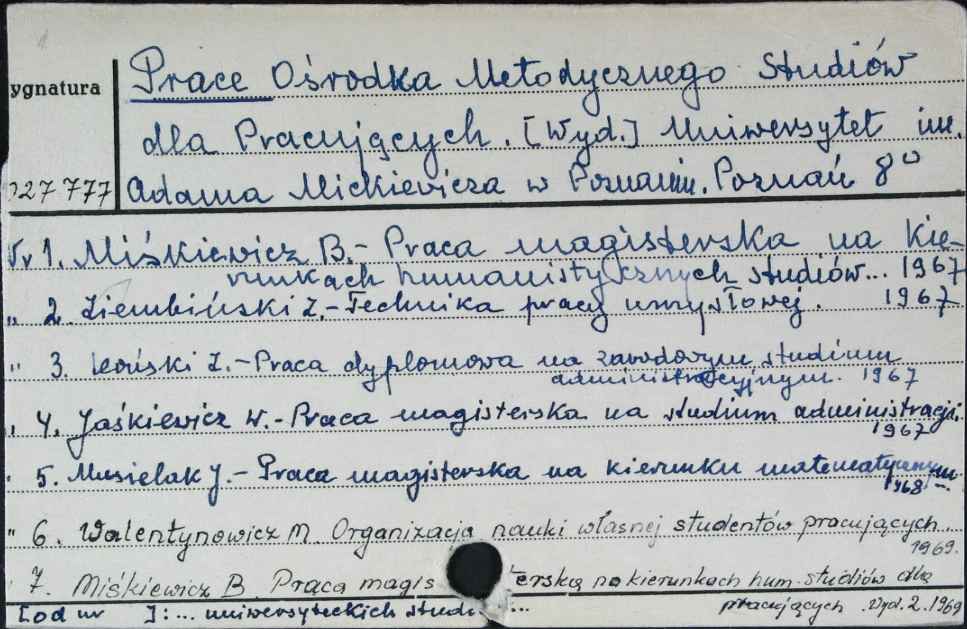 Prace Ośrodka Metodycznego Studiów
ygnatura
dla Pracujących. [Wyd.] Uniwersytet im.
27 777 Adama Mickiewicza w Poznaniu. Poznań 8°
Nr 1. Miśkiewicz B.- Praca magisterska na kie-
runkach humanistycznych studiów... 1967
" 2. Ziembiński Z.- Technika pracy umysłowej. 1967
" 3. Leoński Z.- Praca dyplomowa na zawodowym studium
administracyjnym. 1967
" 4. Jaśkiewicz W.- Praca magisterska na studium administracji.
1967
" 5. Musielak J.- Praca magisterska na kierunku matematycznym
1968.-
" 6. Walentynowicz M. Organizacja nauki własnej studentów pracujących.
1969.
7. Miśkiewicz B. Praca magis terska na kierunkach hum. studiów dla
pracujących. Wyd. 2. 1969
[od nr ]: ... uniwersyteckich studi ...